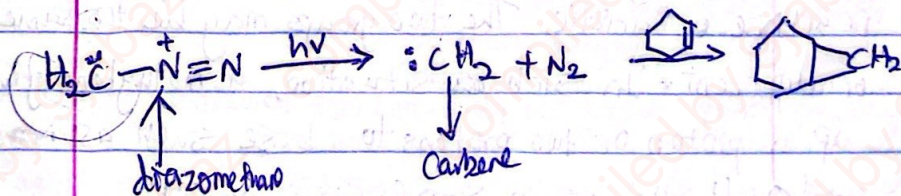 H₂C̈ —N⁺≡N hν → :CH₂ + N₂ → CH₂
diazomethane Carbene